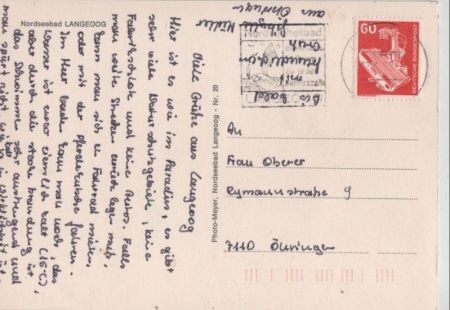 Nordseebad LANGEOOG
Viele Grüße aus Langeoog
Hier ist es wie im Paradies, es gibt
sehr viele Naturschutzgebiete, keine
Fabrikschlote und keine Autos. Falls
man weite Strecken zurücklegen muß,
kann man sich ein Fahrrad mieten,
oder mit der Pferdekutsche fahren.
Im Meer baden kann man auch, das
Wasser ist zwar ziemlich kalt (16°C),
aber durch die starke Brandung ist
das Schwimmen sehr anstrengend und
man spürt nicht, wie kalt es in Wirklichkeit ist.
Bis bald
mit
freundlichen
Grüßen
Müller
aus Öhringen
Photo-Meyer, Nordseebad Langeoog - Nr. 20
60
DEUTSCHE BUNDESPOST
An
Frau Oberer
Eymannstraße 9
7110 Öhringen